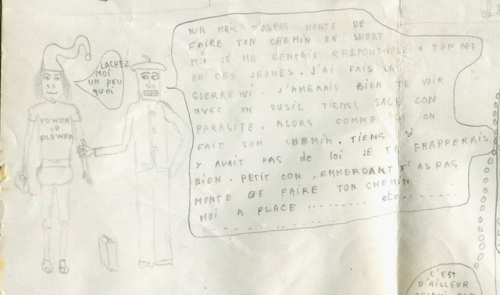 LACHEZ
MOI
UN PEU
QUOI
POWER
OF
FLOWER
NON MAIS T'ASPAS HONTE DE
FAIRE TON CHEMIN EN SHORT
MOI JE ME SENTAIS RESPONSABLE A TON AGE
DE CES JEUNES. J'AI FAIS LA
GUERRE MOI. J'AMERAIS BIEN TE VOIR
AVEC UN FUSIL TIENS! SALE CON
PARASITE. ALORS COMME ON
FAIT SON CHEMIN. TIENS S'Y
Y AVAIT PAS DE LOI JE TE FRAPPERAIS
BIEN. PETIT CON, EMMERDANT T'AS PAS
HONTE DE FAIRE TON CHEMIN
MOI A PLACE ......... etc........
...............
C'EST
D'AILLEUR